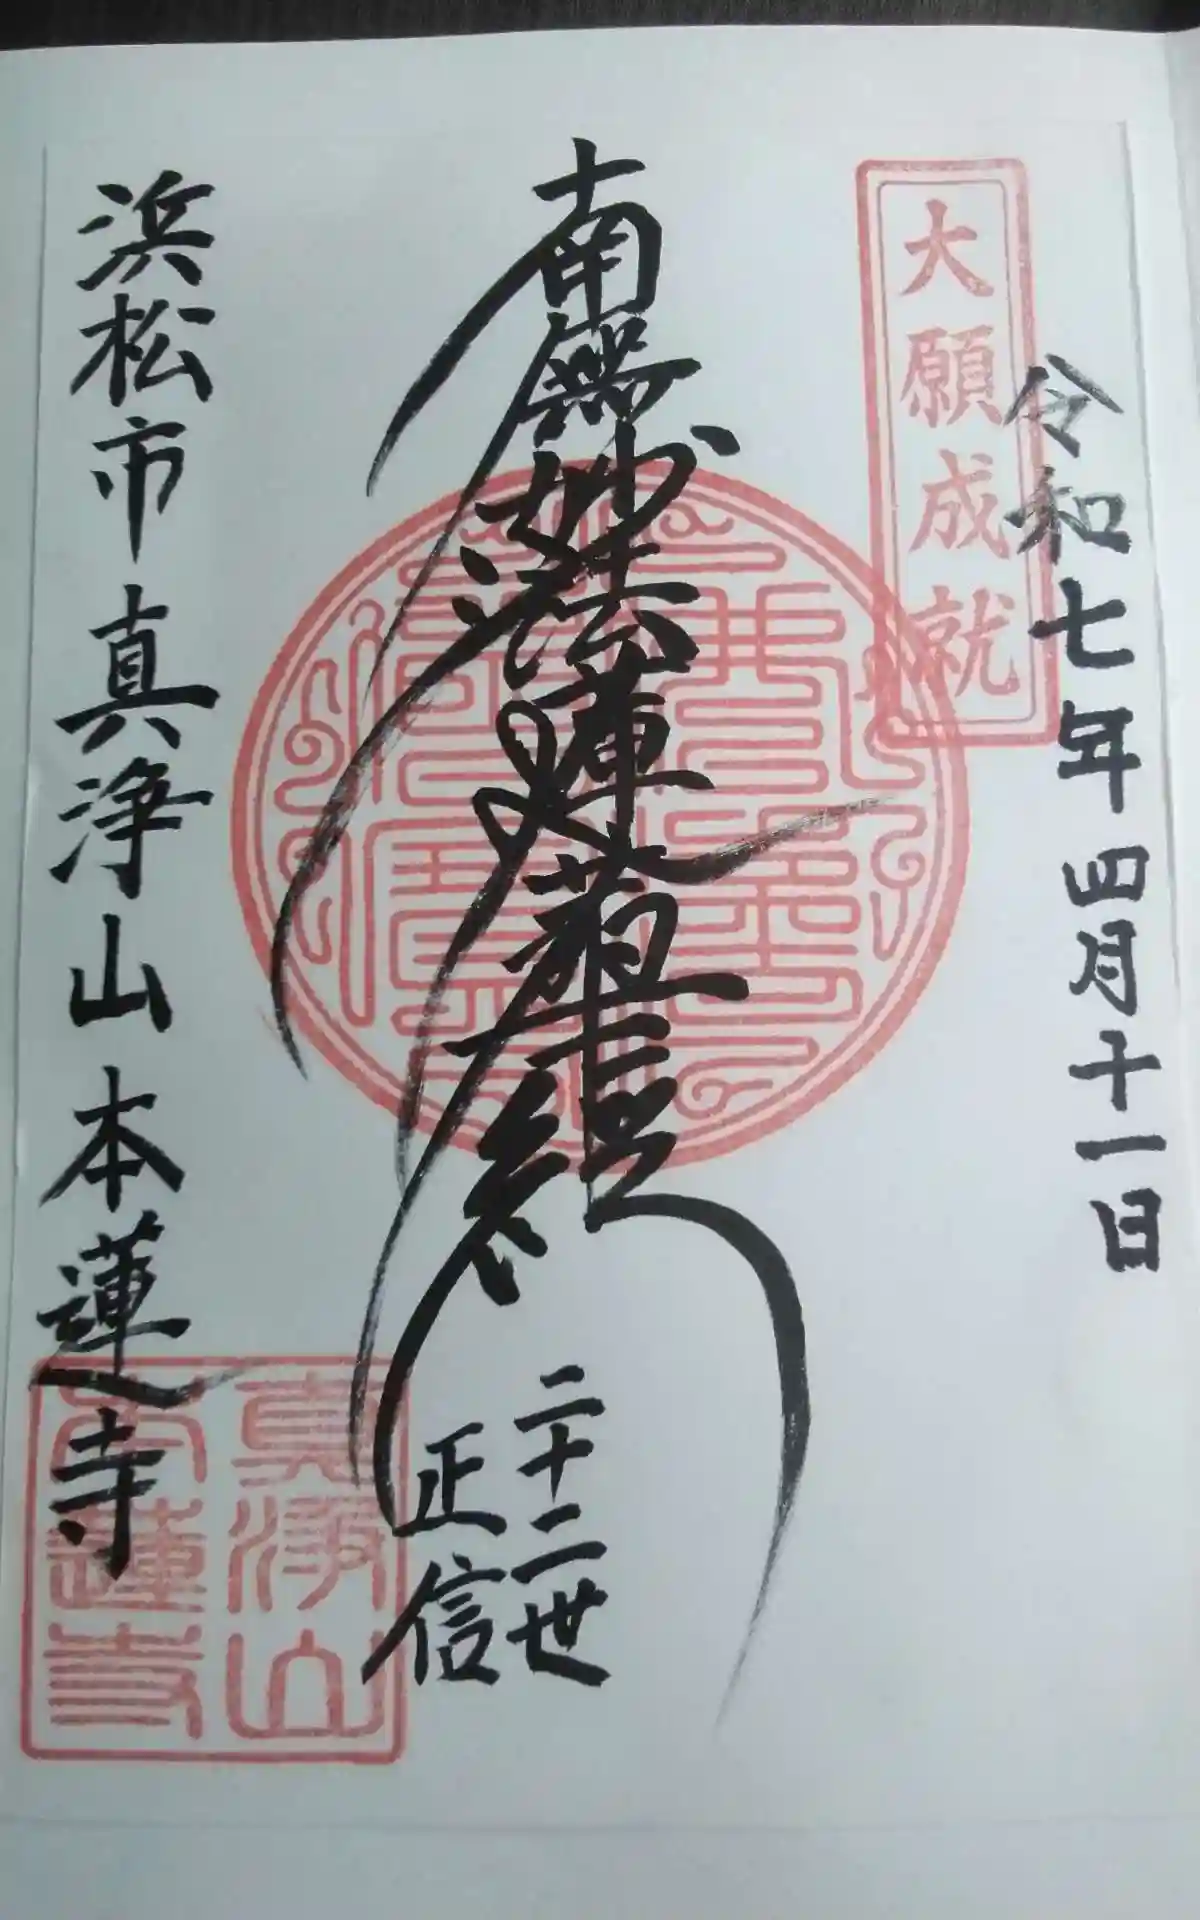 大願成就
令和七年四月十一日
南無妙法蓮華経
二十二世
正信
浜松市真浄山本蓮寺
真浄山
本蓮寺